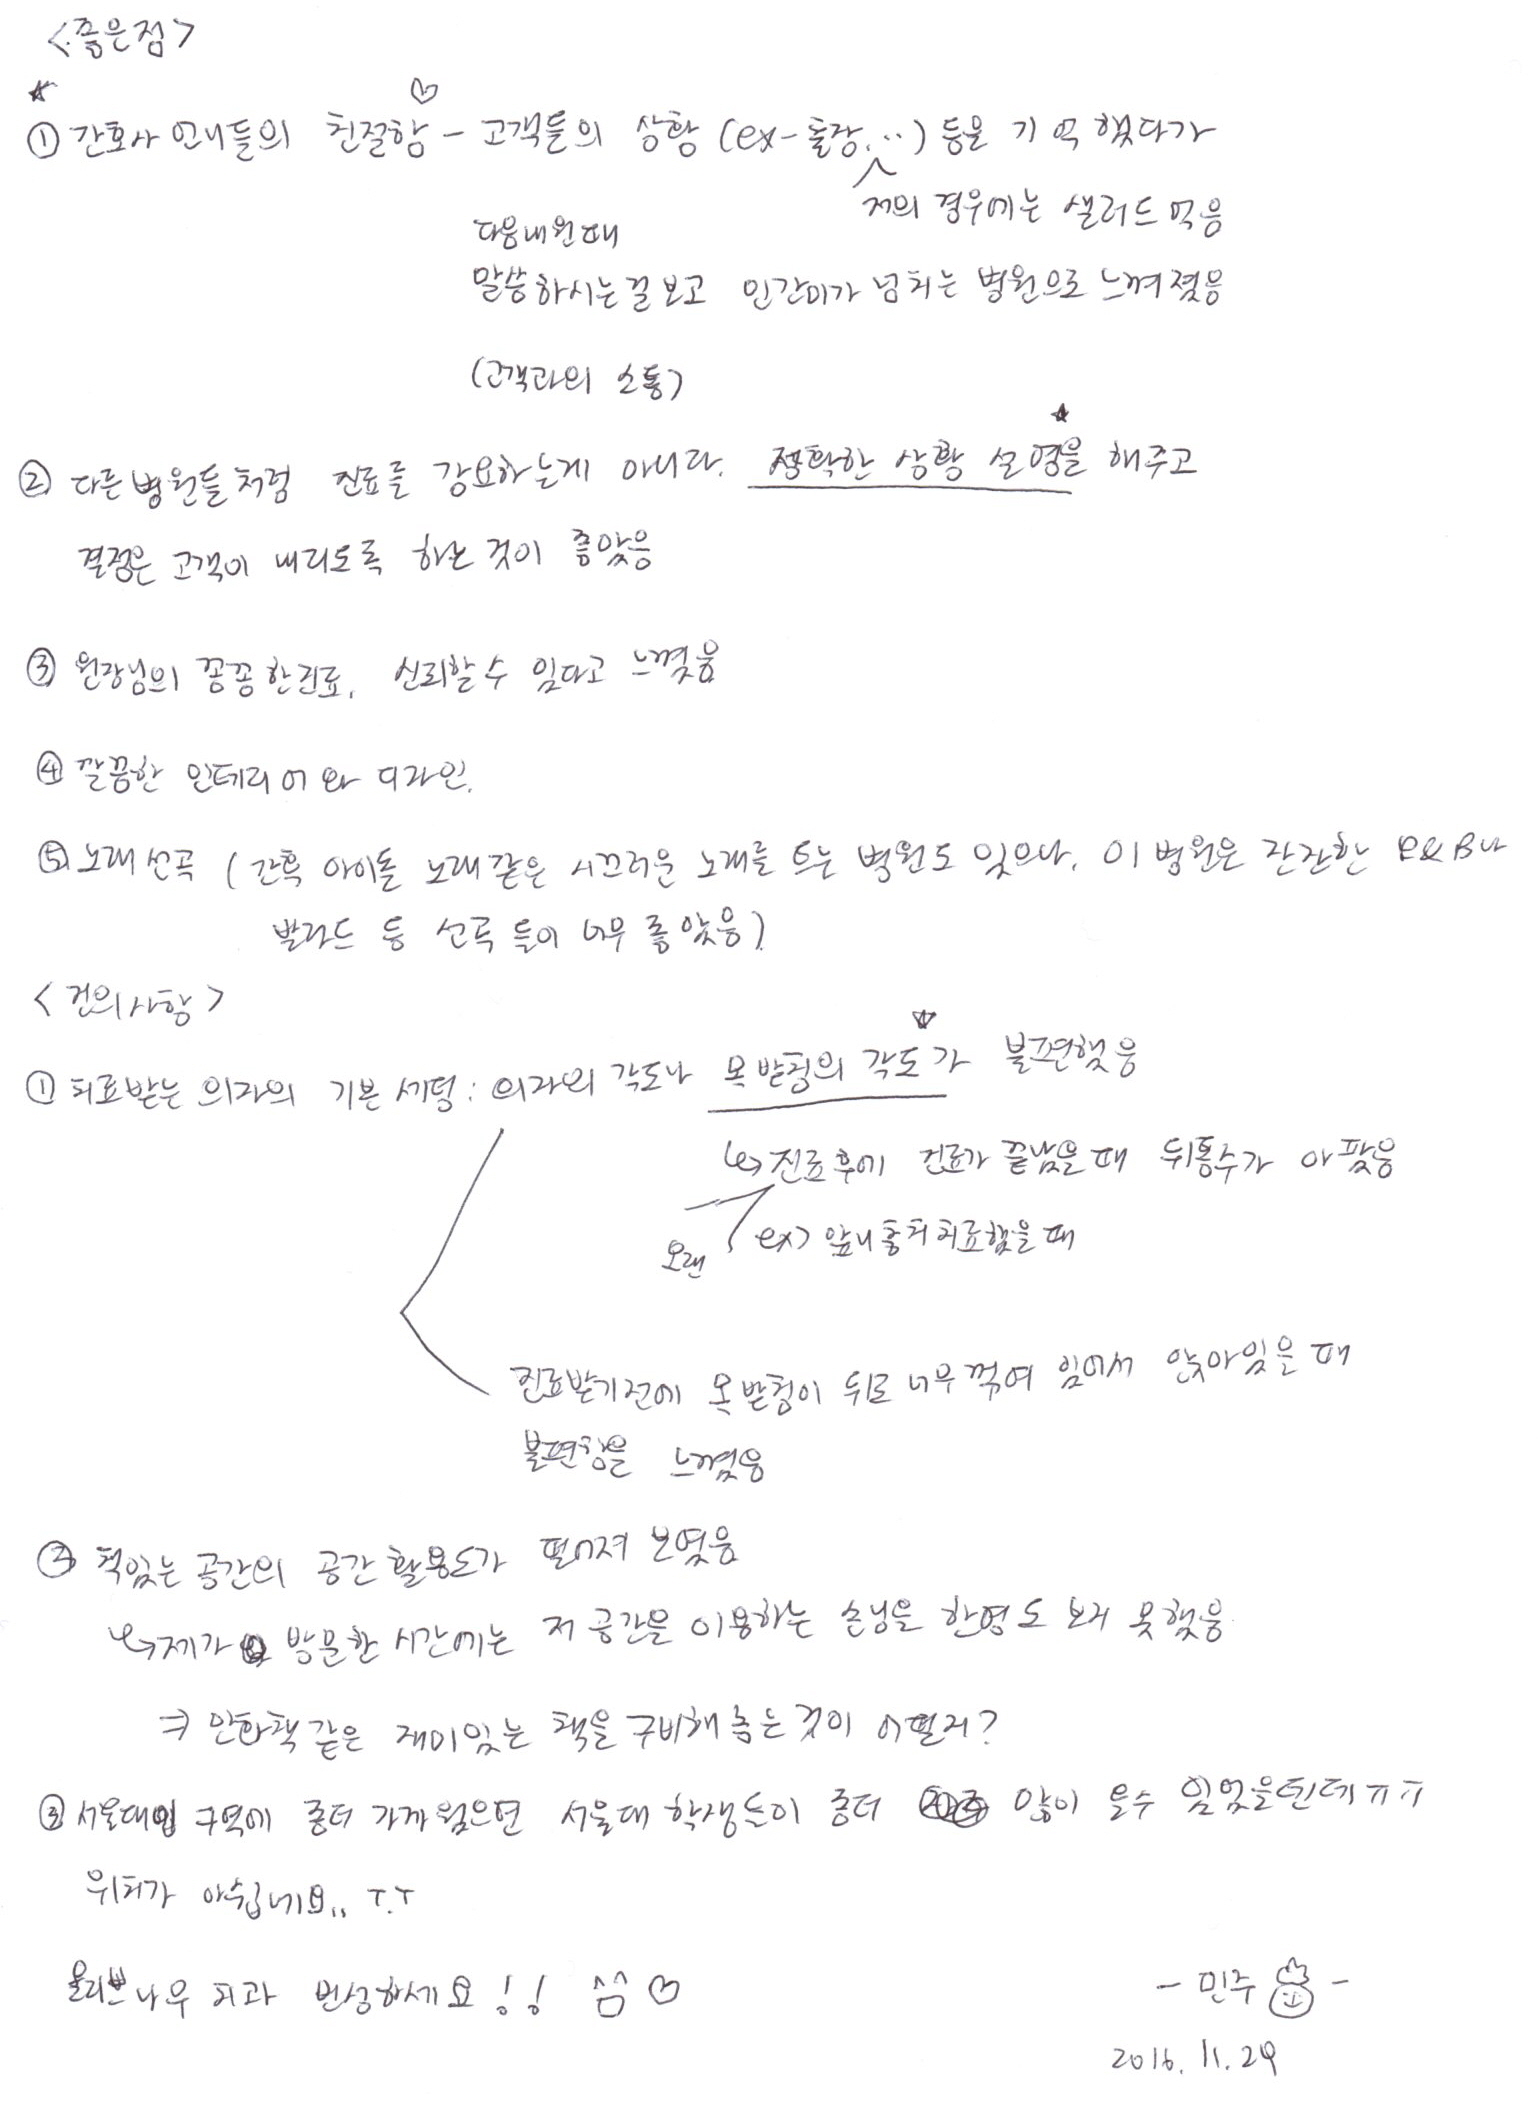 <좋은점>
① 간호사 언니들의 친절함 - 고객들의 상황 (ex-출장...) 등을 기억했다가
저의 경우에는 샐러드 먹음
다음내원때
말씀하시는걸보고 인간미가 넘치는 병원으로 느껴졌음
(고객과의 소통)
② 다른병원들처럼 진료를 강요하는게 아니라. 정확한 상황 설명을 해주고
결정은 고객이 내리도록 하는 것이 좋았음
③ 원장님의 꼼꼼한진료, 신뢰할수 있다고 느꼈음
④ 깔끔한 인테리어와 디자인.
⑤ 노래선곡 (간혹 아이돌 노래같은 시끄러운 노래를 트는 병원도 있으나, 이 병원은 잔잔한 R&B나
발라드 등 선곡들이 너무 좋았음).
<건의사항>
① 치료받는 의자의 기본세팅: 의자의 각도나 목받침의 각도가 불편했음
↳ 진료후에 진료가 끝났을때 뒤통수가 아팠음
오랜 ex) 앞니충치치료했을때
진료받기전에 목받침이 뒤로 너무꺾여 있어서 앉아있을때
불편함을 느꼈음
② 책있는 공간의 공간활용도가 떨어져 보였음
↳ 제가 방문한 시간에는 저 공간을 이용하는 손님을 한명도 보지 못했음
⇒ 만화책같은 재미있는 책을 구비해 놓는것이 어떨지?
③ 서울대입구역에 좀더 가까웠으면 서울대 학생들이 좀더 많이 올수 있었을텐데ㅠㅠ
위치가 아쉽네요.. T.T
올리브나무 치과 번성하세요!! ^^ ♡
- 민주 -
2016. 11. 29